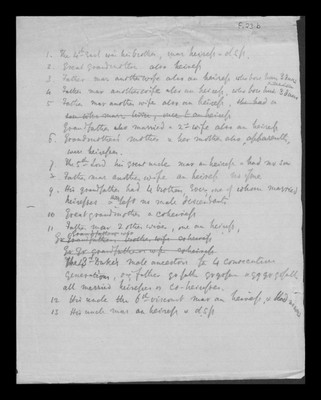 1. The 4th Earl viii his brother, mar heiress & dsp.
2. Great grandmother also heiress
3. Father mar another wife also an heiress who bore him 3
4. Father mar another wife also an heiress, who bore him 3
5 Father mar another wife also an heiress, she had is
Grandfather also married a 2nd wife also an heiress
6. Grandmother's mother & her mother also apparently,
were heiresses.
7 The 5th Lord his great uncle mar an heiress & had no son
8 Father mar another wife an heiress no
9. His grandfather had 4 brothers, Every one of whom married
heiresses & left no male descendants
10 Great grandmother a coheiress
11 Father mar 2 other wives, one an heiress,
Gr Grandfather's wife
The 4th Duke's male ancestors for 4 consecutive
generations, viz father gd fath gd gd fa & g g gd fath
all married heiresses or co-heiresses.
12. His uncle the 6th viscount mar an heiress, &
13 His uncle mar an heiress & dsp